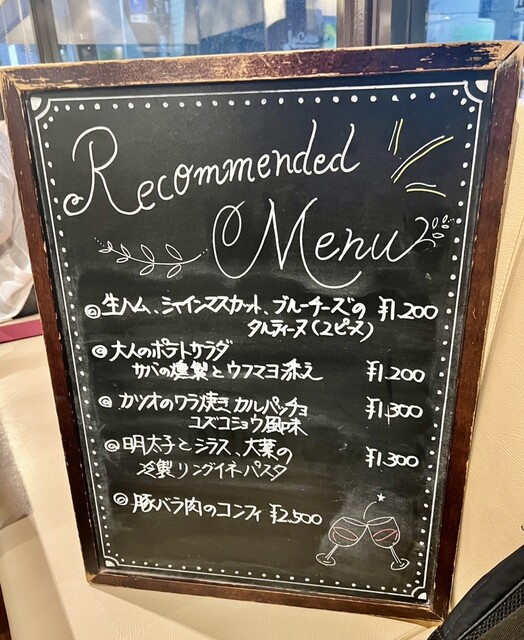 Recommended
Menu
◎生ハム、シャインマスカット、ブルーチーズの ¥1,200
タルティーヌ(2ピース)
◎大人のポテトサラダ
サバの燻製とウフマヨ添え ¥1,200
◎カツオのワラ焼きカルパッチョ ¥1,300
コズコショウ風味
◎明太子とシラス、大葉の
冷製リングイネパスタ ¥1,300
◎豚バラ肉のコンフィ ¥2,500